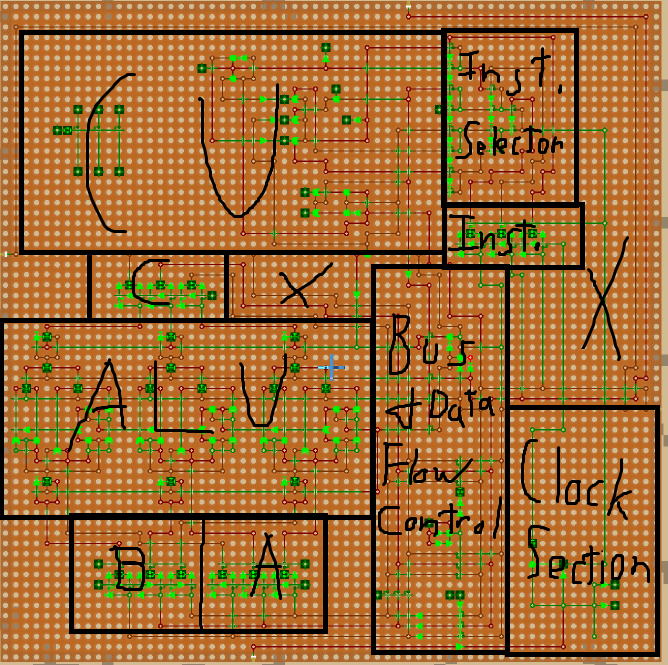 CU
Inst.
Selector
Inst.
C
X
X
ALU
Bus
& Data
Flow
Control
Clock
Section
B
A